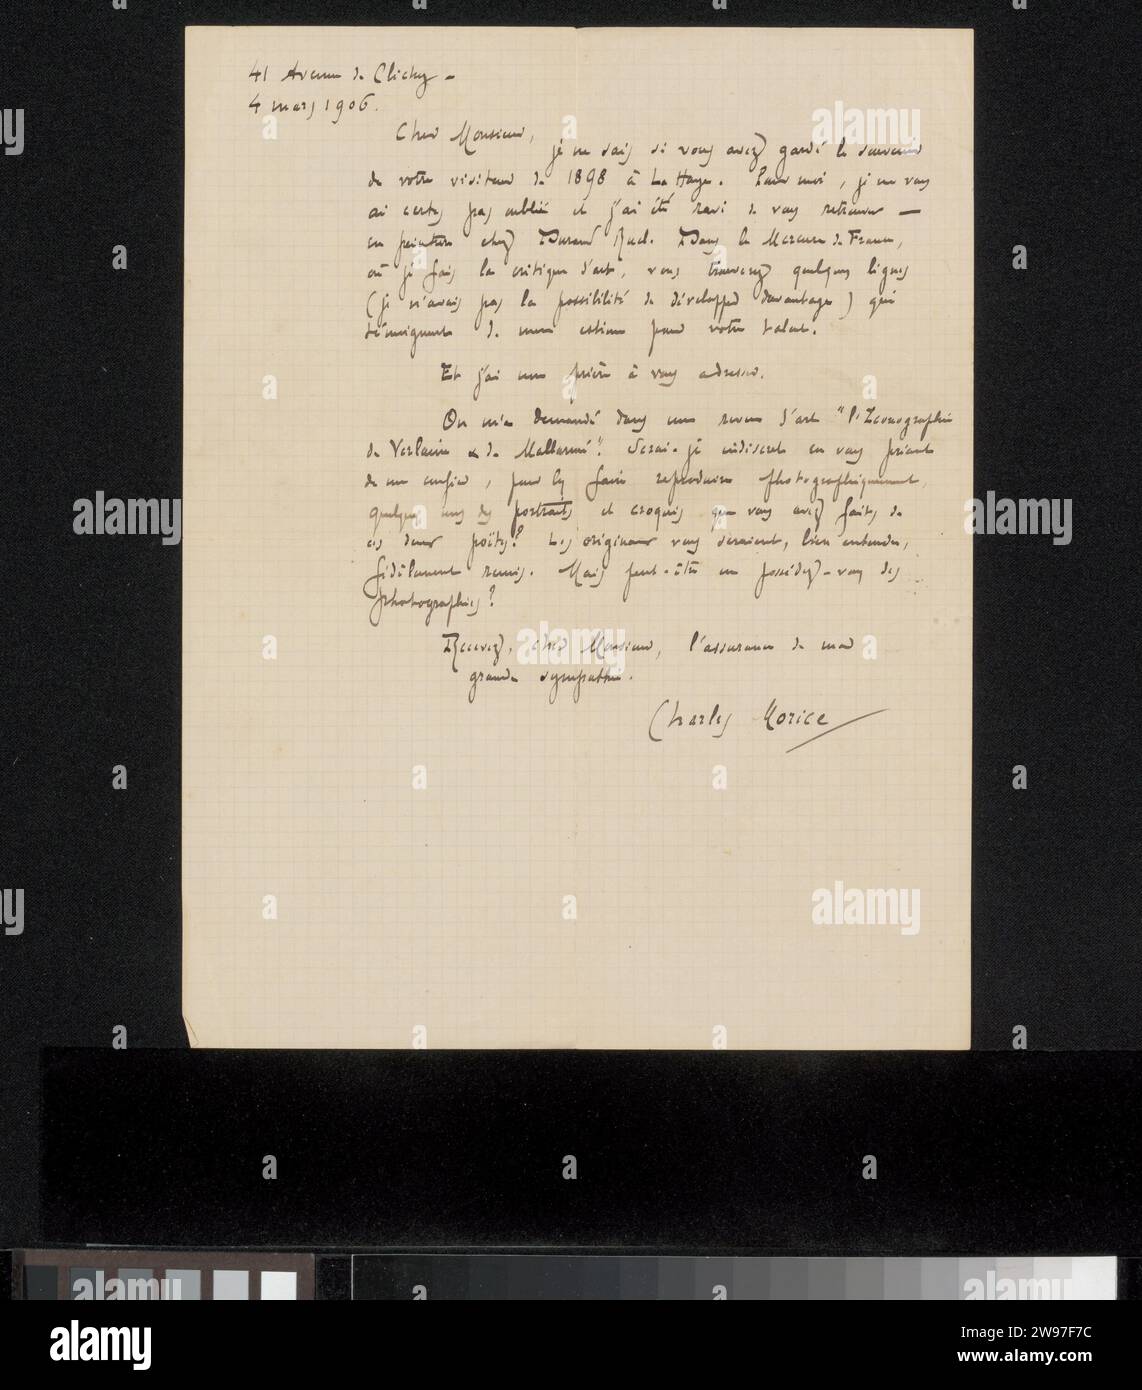 41 Avenue de Clichy -
4 mars 1906.
Cher Monsieur,
je ne sais si vous avez gardé le souvenir
de votre visiteur de 1898 à La Haye. Pour moi, je ne vous
ai certes pas oublié et j'ai été ravi de vous retrouver —
en peinture chez Durand Ruel. Dans le Mercure de France,
où je fais la critique d'art, vous trouverez quelques lignes
(je n'avais pas la possibilité de développer davantage) qui
témoignent de mon estime pour votre talent.
Et j'ai une prière à vous adresser.
On m'a demandé dans une revue d'art "l'Iconographie
de Verlaine & de Mallarmé". Serai-je indiscret en vous priant
de me confier, pour les faire reproduire photographiquement,
quelques uns des portraits et croquis que vous avez faits de
ces deux poëtes? Les originaux vous seraient, bien entendu,
fidèlement remis. Mais peut-être en possédez-vous des
photographies?
Recevez, cher Monsieur, l'assurance de ma
grande sympathie.
Charles Morice
alamy
Image ID: 2W97F7C
www.alamy.com